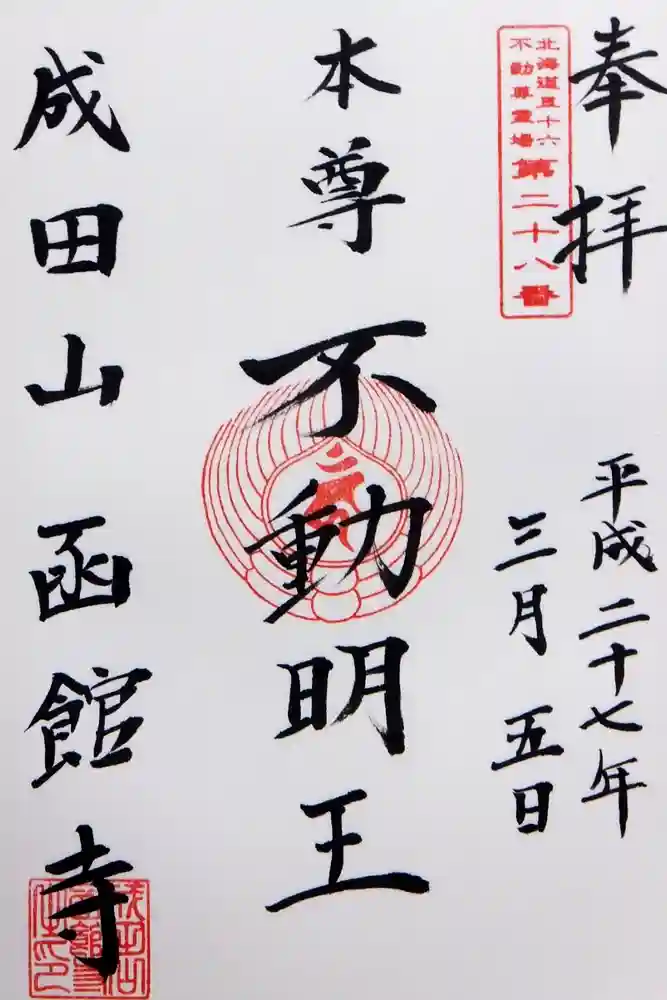 奉拝
北海道三十六
不動尊霊場
第二十八番
平成二十七年
三月五日
本尊不動明王
成田山函館寺